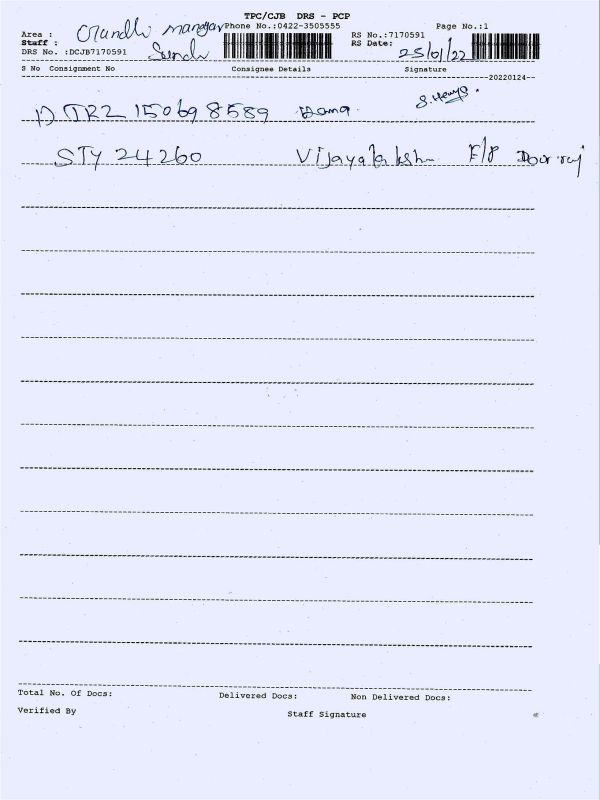 TPC/CJB DRS - PCP
Area : Gandhi managar Phone No.:0422-3505555 Page No.:1
Staff : RS No.:7170591
DRS No. :DCJB7170591 RS Date: 25/01/22
S No Consignment No Consignee Details Signature
20220124
1) TRZ 150698589 S.Hemg.
STY 24260 Vijayalakshm F/P
Total No. Of Docs: Delivered Docs: Non Delivered Docs:
Verified By Staff Signature